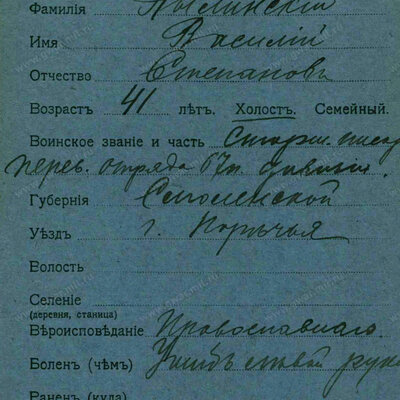 Фамилія
Имя Василій
Отчество Степановъ
Возрастъ 41 лѣтъ. Холостъ. Семейный.
Воинское званіе и часть Старш. писар
перев. отряда 67п. дивизіи.
Губернія Смоленской
Уѣздъ г. Порѣчья
Волость
Селеніе
(деревня, станица)
Вѣроисповѣданіе Православнаго
Боленъ (чѣмъ) Ушибъ лѣвой рук
Раненъ (куда)